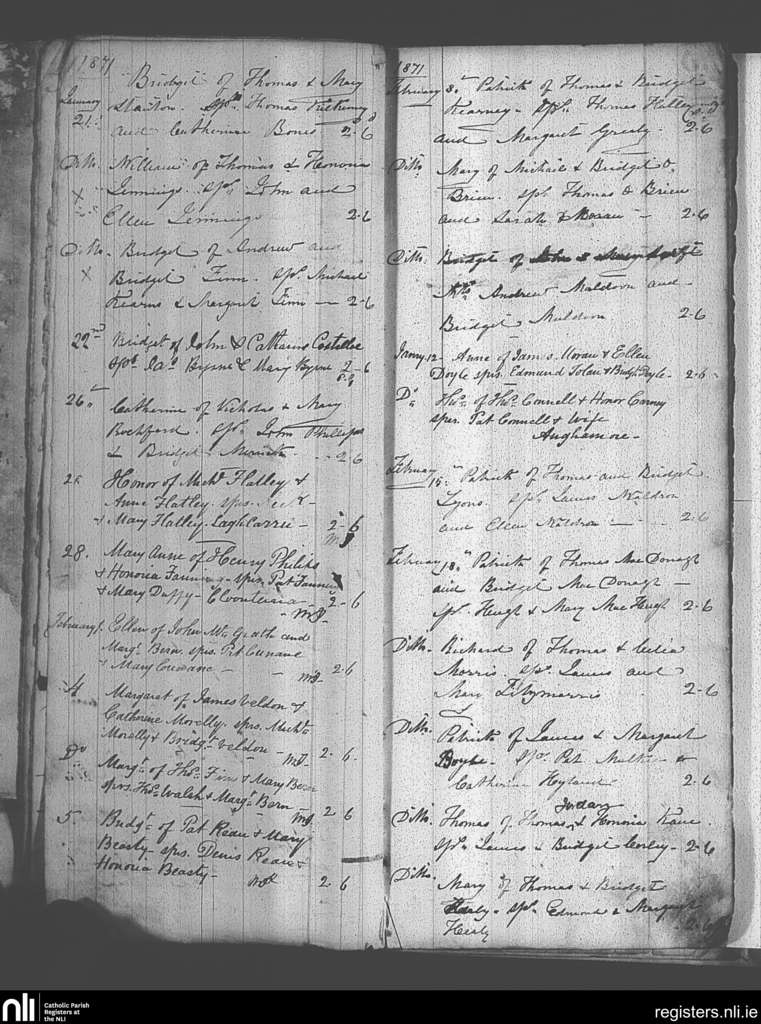 1871
January
21st
Bridget of Thomas & Mary
Stanton. Sps Thomas
and Catherine Bones 2-6
Ditto. William of Thomas & Honoria
Jennings. Sps John and
Ellen Jennings 2-6
Ditto. Bridget of Andrew and
Bridget Finn. Sps Michael
Kearns & Margaret Finn — 2-6
22nd Bridget of John & Catharine Costelloe
Sps Jas Byrne & Mary Byrne 2-6
26th Catherine of Nicholas & Mary
Rochford. Sps John Phillips
& Bridget 2-6
Honor of Michl Flatley &
Anne Flatley sprs
& Mary Flatley 2-6
28. Mary Anne of Henry Philips
& Honoria Fanning - sprs. Pat Fanning
& Mary Duffy - 2-6
February 1. Ellen of John Mc Grath and
Margt Bern sprs Pat Cunane
& Mary Cunane - 2-6
4 Margaret of James Veldon &
Catherine Morelly. sprs. Michl
Morelly & Bridgt Veldon - 2-6.
Do Margt of Thos Finn & Mary Bern
sprs. Thos Walsh & Margt Bern 2-6
5 Bridgt of Pat Keau & Mary
Beasty sprs. Denis Keau &
Honoria Beasty - 2-6
1871
February 8th Patrick of Thomas & Bridget
Kearney - Sps. Thomas
and Margaret Grealy. 2-6
Ditto Mary of Michael & Bridget O
Brien. Sps. Thomas O Brien
and Sarah Moran - 2-6
Ditto. Bridget of
Andrew Muldoon and
Bridget Muldoon 2-6
12 - Anne of James Moran & Ellen
Doyle sprs. Edmund Dolan & Bridgt Doyle - 2-6
Do Thos of Thos Connell & Honor
sprs Pat Connell & Wife
Aughamore -
February 15th Patrick of Thomas and Bridget
Lyons. Sps James Waldron
and Ellen Waldron — 2-6
February 18th Patrick of Thomas Mac Donagh
and Bridget Mac Donagh —
Sps. Hugh & Mary Mac Hugh 2-6
Ditto. Richard of Thomas & Celia
Morris. Sps James and
Mary Fitzmorris 2-6
Ditto. Patrick of James & Margaret
Boyle. Sps. Pat &
Catherine Hyland 2-6
Ditto. Thomas of Thomas & Honoria
Sps James & Bridget Corley - 2-6
Ditto. Mary of Thomas & Bridget
Healy - Sps. Edmond & Margaret
Healy 2-6
nli
Catholic Parish
Registers at
the NLI
registers.nli.ie